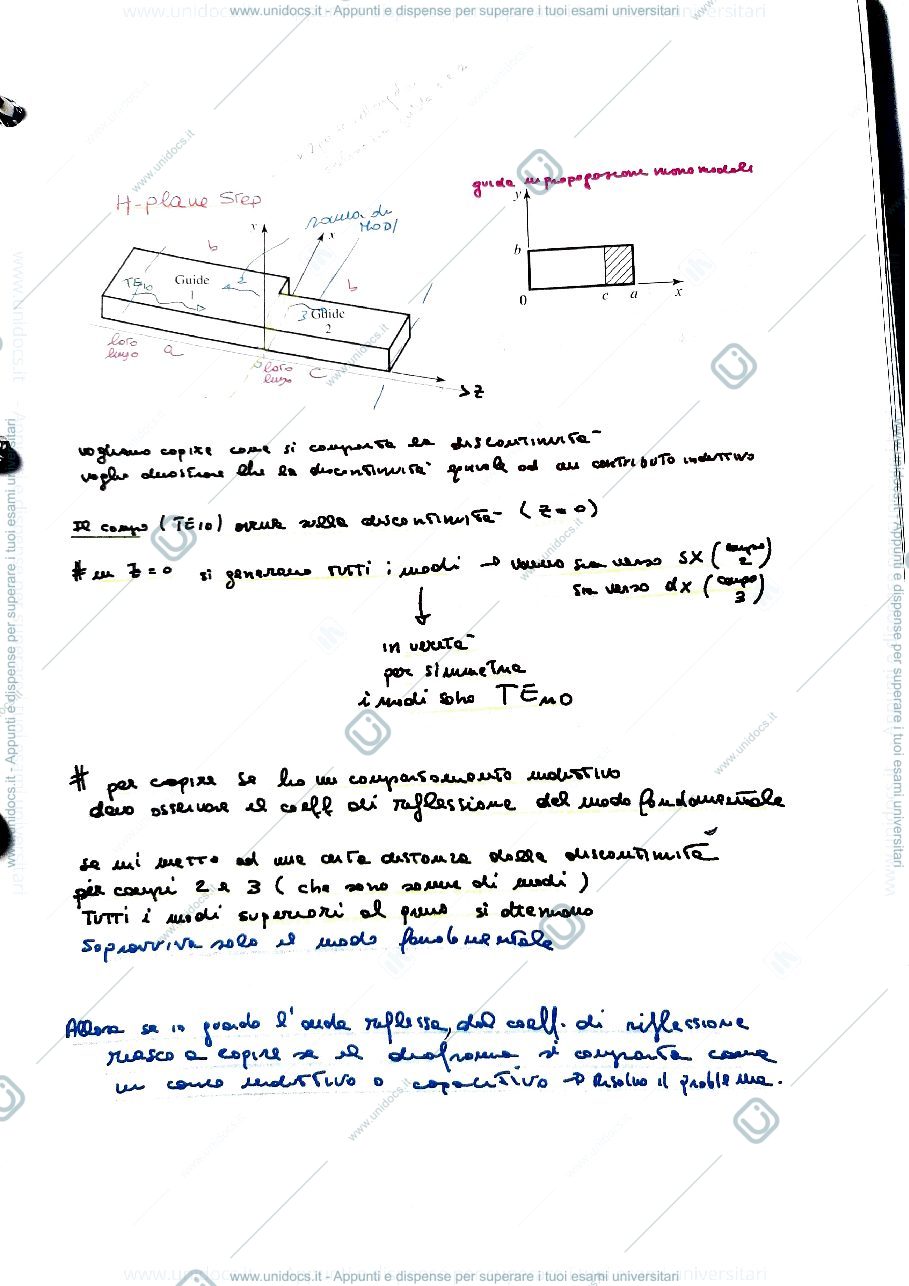 www.unidocs.it - Appunti e dispense per superare i tuoi esami universitari
guida in propagazione monomodale
H-plane Step
somma di
MODI
y
b
0
c
a
x
y
x
b
b
TE10
Guide
1
2
3
Guide
2
loro
lungo
a
loro
lungo
c
z
vogliamo capire come si comporta la discontinuità
voglio dimostrare che la discontinuità equivale ad un contributo induttivo
Il campo (TE10) arriva sulla discontinuità (z=0)
# in z=0 si generano TUTTI i modi → vanno sia verso SX (campo 2)
sia verso dx (campo 3)
↓
in verità
per simmetria
i modi sono TEn0
# per capire se ho un comportamento induttivo
devo osservare il coeff di riflessione del modo fondamentale
se mi metto ad una certa distanza dalla discontinuità
per campi 2 e 3 (che sono somme di modi)
TUTTI i modi superiori al primo si attenuano
Sopravvive solo il modo fondamentale
Allora se io guardo l'onda riflessa, dal coeff. di riflessione
riesco a capire se il diaframma si comporta come
un carico induttivo o capacitivo → Risolvo il problema.
www.unidocs.it - Appunti e dispense per superare i tuoi esami universitari